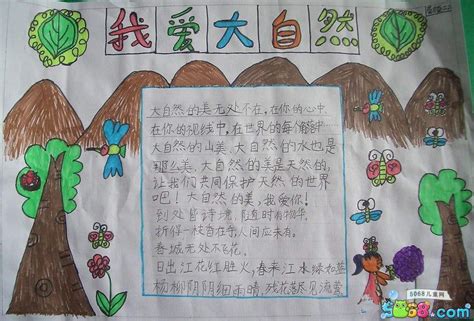 我爱大自然
大自然的美无处不在,在你的心中
在你的视线中,在世界的每个角落中…
大自然的山美、大自然的水也是
那么美,大自然的美是天然的,
让我们共同保护天然的世界
吧!大自然的美,我爱你!
到处皆诗境,随时有物华,
折得一枝香在手,人间应未有,
春城无处不飞花,
日出江花红胜火,春来江水绿如蓝
杨柳阴阴细雨晴,残花落尽见流莺
5068儿童网
5068.com